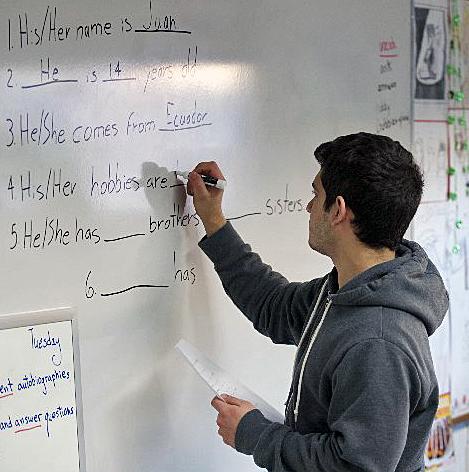 1. His/Her name is Juan
2. He is 14 years old
3. He/She comes from Ecuador
4. His/Her hobbies are
5 He/She has ____ brothers ____ sisters
6. ____ has
Tuesday
autobiographies
and answer questions